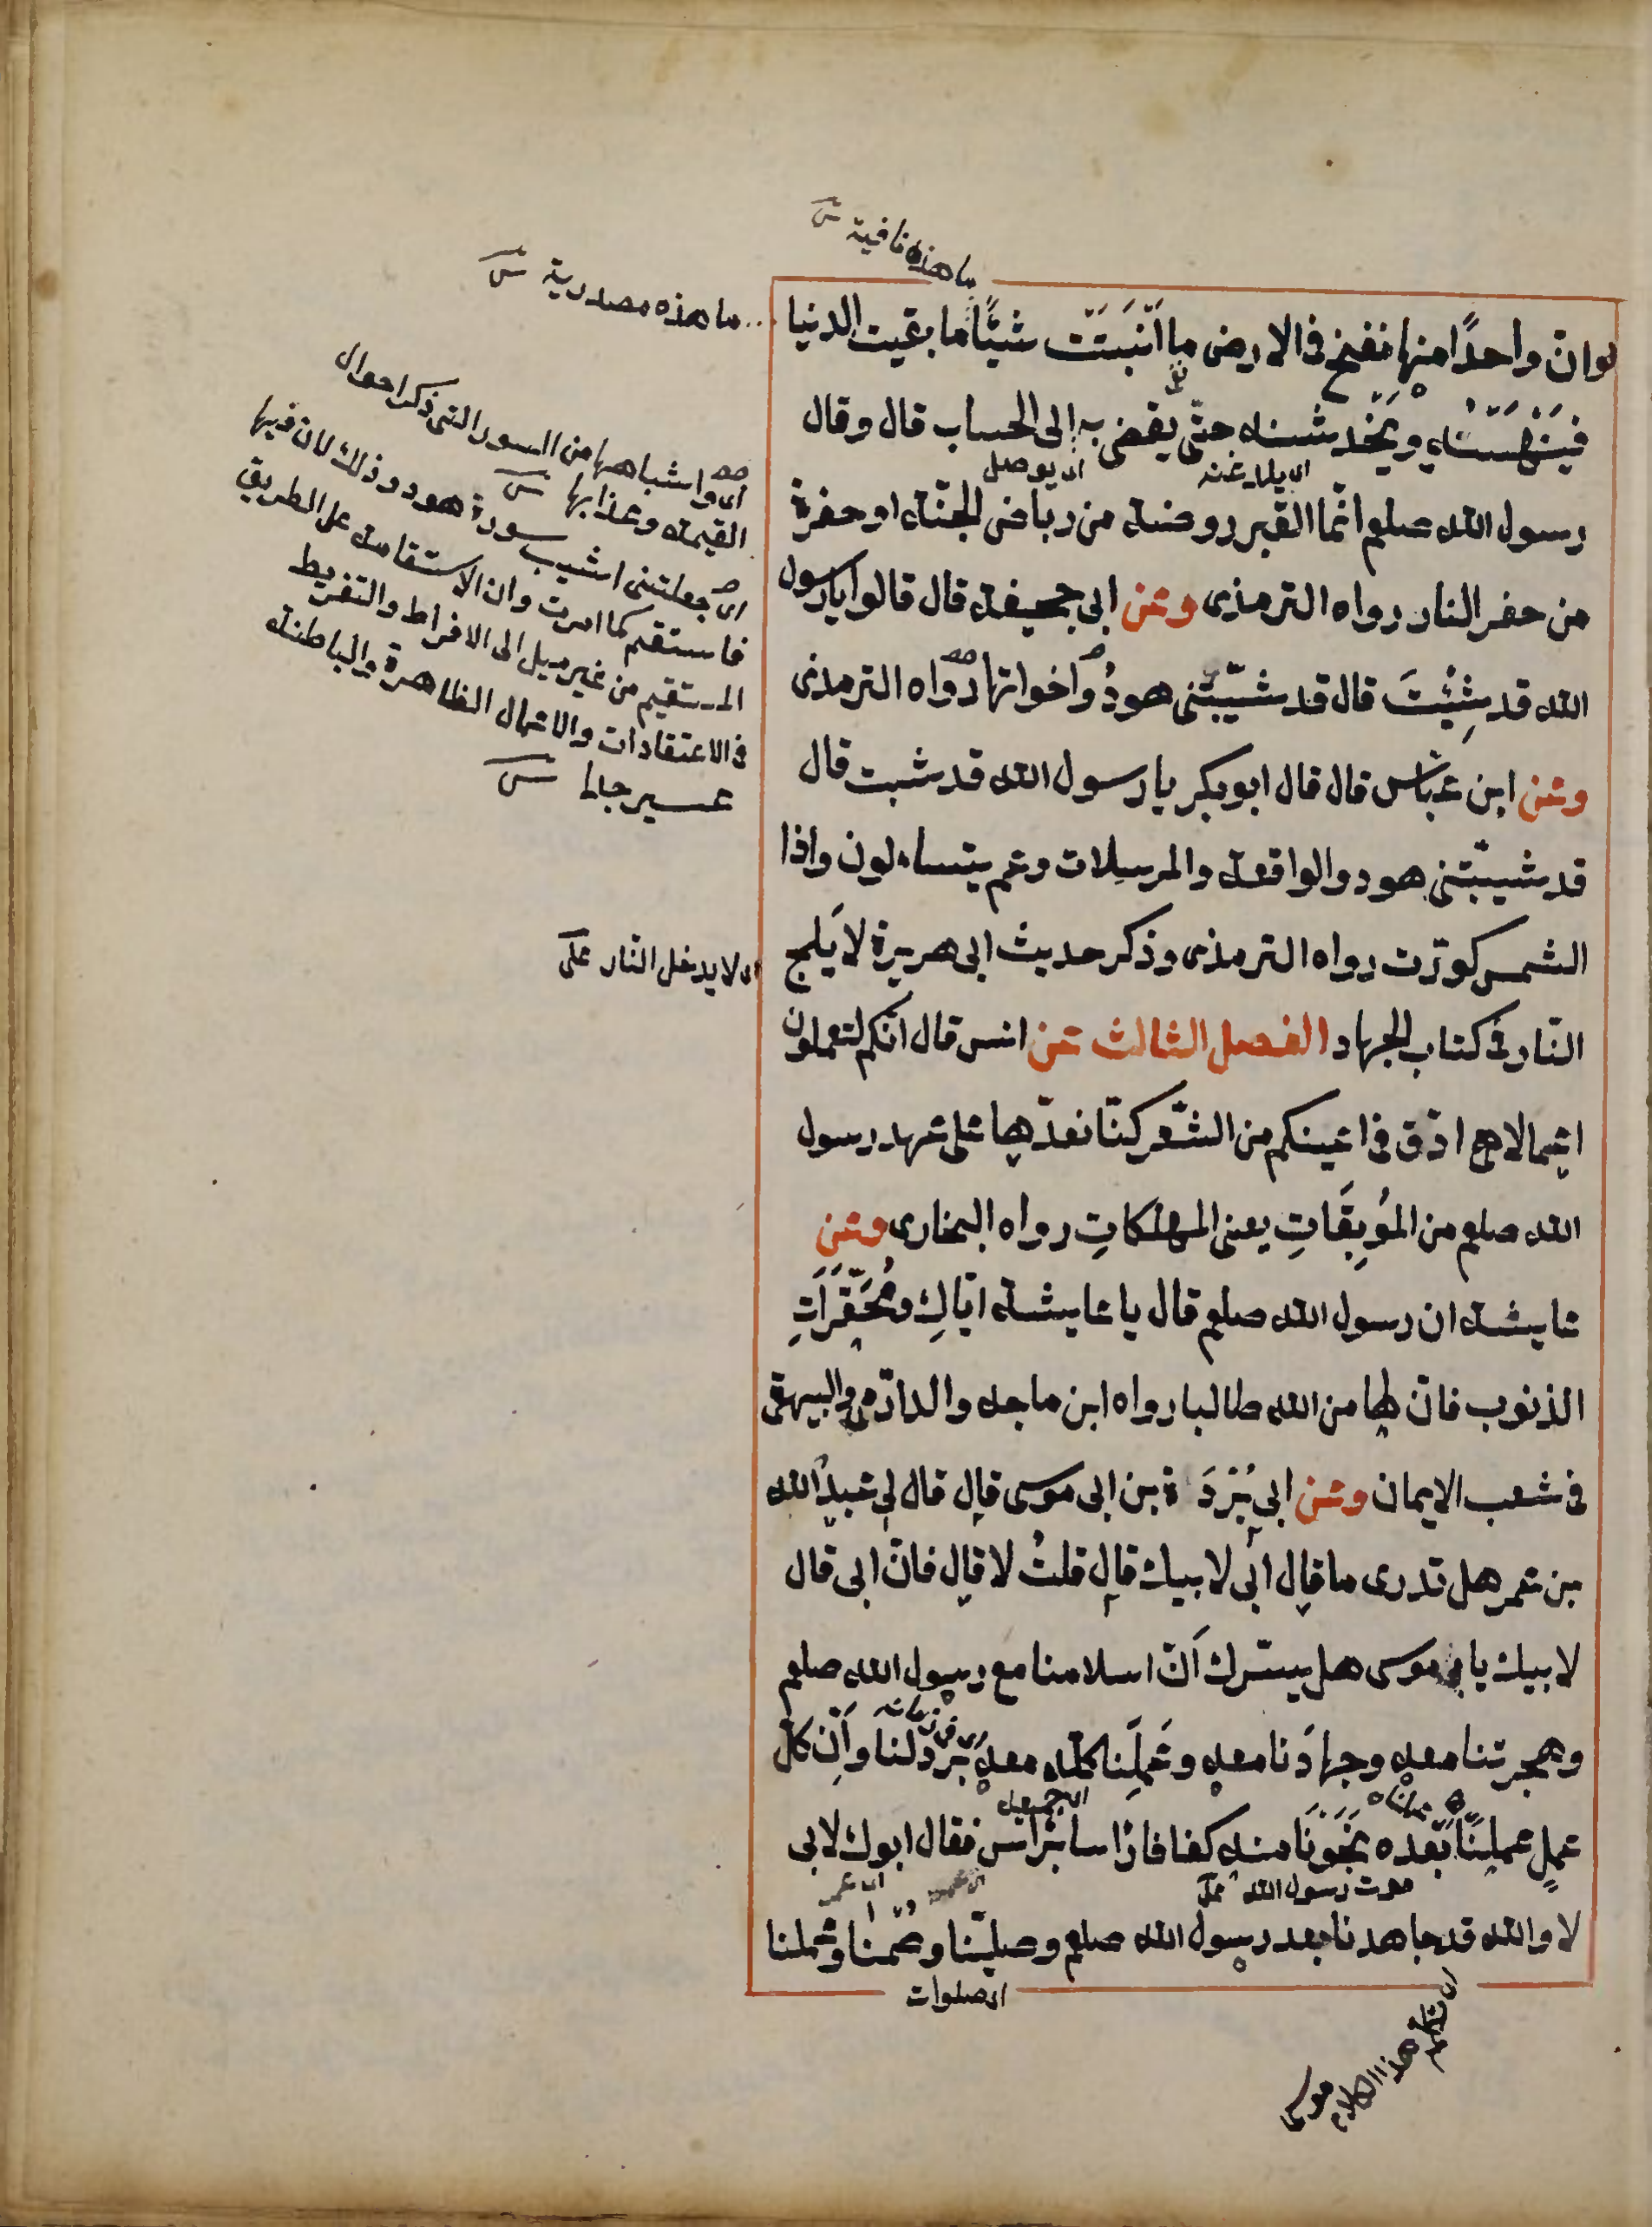 ما هذه نافية
ما هذه مصدرية
لو ان واحدًا منها نفخ فى الارض ما اَنْبَتَتْ شيئًا ما بقيت الدنيا
فينهسنه ويخدشنه حتّى يقضى به الى الحساب قال وقال
اى يلدغنه
اى يوصل
رسول الله صلعم انّما القبر روضة من رياض الجنّة او حفرة
من حفر النار رواه الترمذى وعن ابى جحيفة قال قالوا يا رسول
الله قد شِبْتَ قال قد شيّبتنى هودُ واخواتها رواه الترمذى
وعن ابن عبّاس قال قال ابو بكر يا رسول الله قد شبت قال
قد شيّبتنى هود والواقعة والمرسلات وعم يتساءلون واذا
الشمس كوّرت رواه الترمذى وذكر حديث ابى هريرة لا يَلج
النّار فى كتاب الجهاد الفصل الثالث عن انس قال انّكم لتعملون
اعمالا هى ادّق فى اعينكم من الشّعر كنّا نعدّها على عهد رسول
الله صلعم من المُوبِقَاتِ يعنى المهلكاتِ رواه البخارى وعن
عايشة ان رسول الله صلعم قال يا عايشة ايّاكِ ومُحَقَّرَاتِ
الذنوب فانّ لها من الله طالبا رواه ابن ماجه والدارمى والبيهقى
فى شعب الايمان وعن ابى بُرْدَة بن ابى موسى قال قال لى عبد الله
بن عمر هل تدرى ما قال ابى لابيك قال قلتُ لا قال فانّ ابى قال
لابيك يا ابا موسى هل يسّرك اَنّ اسلامنا مع رسول الله صلعم
وهجرتنا معه وجهادَنا معه وعَمَلَنا كلّه معه بَرَدَ لنا واَنّ كلّ
عملٍ عملنا بَعْده نَجَوْنَا منه كفافا راسا براس فقال ابوك لابى
موت رسول الله
اى عمر
لا والله قد جاهدنا بعد رسول الله صلعم وصلّينا وصُمْنا وعملنا
اى صلوات
اى واشباهها من السور التى ذكر احوال
القيمة وعذابها
اى جعلتنى اشيب سورة هود وذلك لان فيها
فاستقم كما امرت وان الاستقامة على الطريق
المستقيم من غير ميل الى الافراط والتفريط
فى الاعتقادات والاعمال الظاهرة والباطنة
عسير جدا
اى لا يدخل النّار على